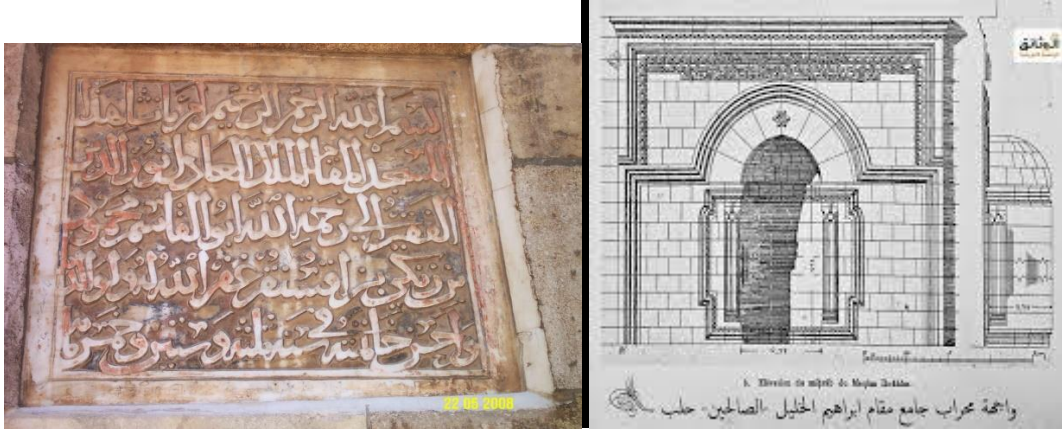 بسم الله الرحمن الرحيم امر بانشا هذا
المسجد المقام الملك العادل نور الدين
الفقير الى رحمة الله ابو القاسم محمود
بن زنكي بن اقسنقر غفر الله له ولوالديه
واحسن خاتمته في سنة وستين وخمس
22 06 2008
الوثائق
Elévation du mihrâb de
واجهة محراب جامع مقام ابراهيم الخليل -الصالحين- حلب